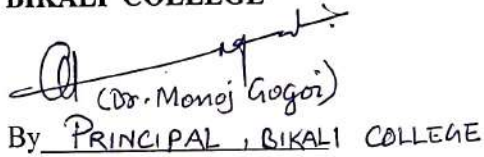 BIKALI COLLEGE
(Dr. Monoj Gogoi)
By PRINCIPAL, BIKALI COLLEGE